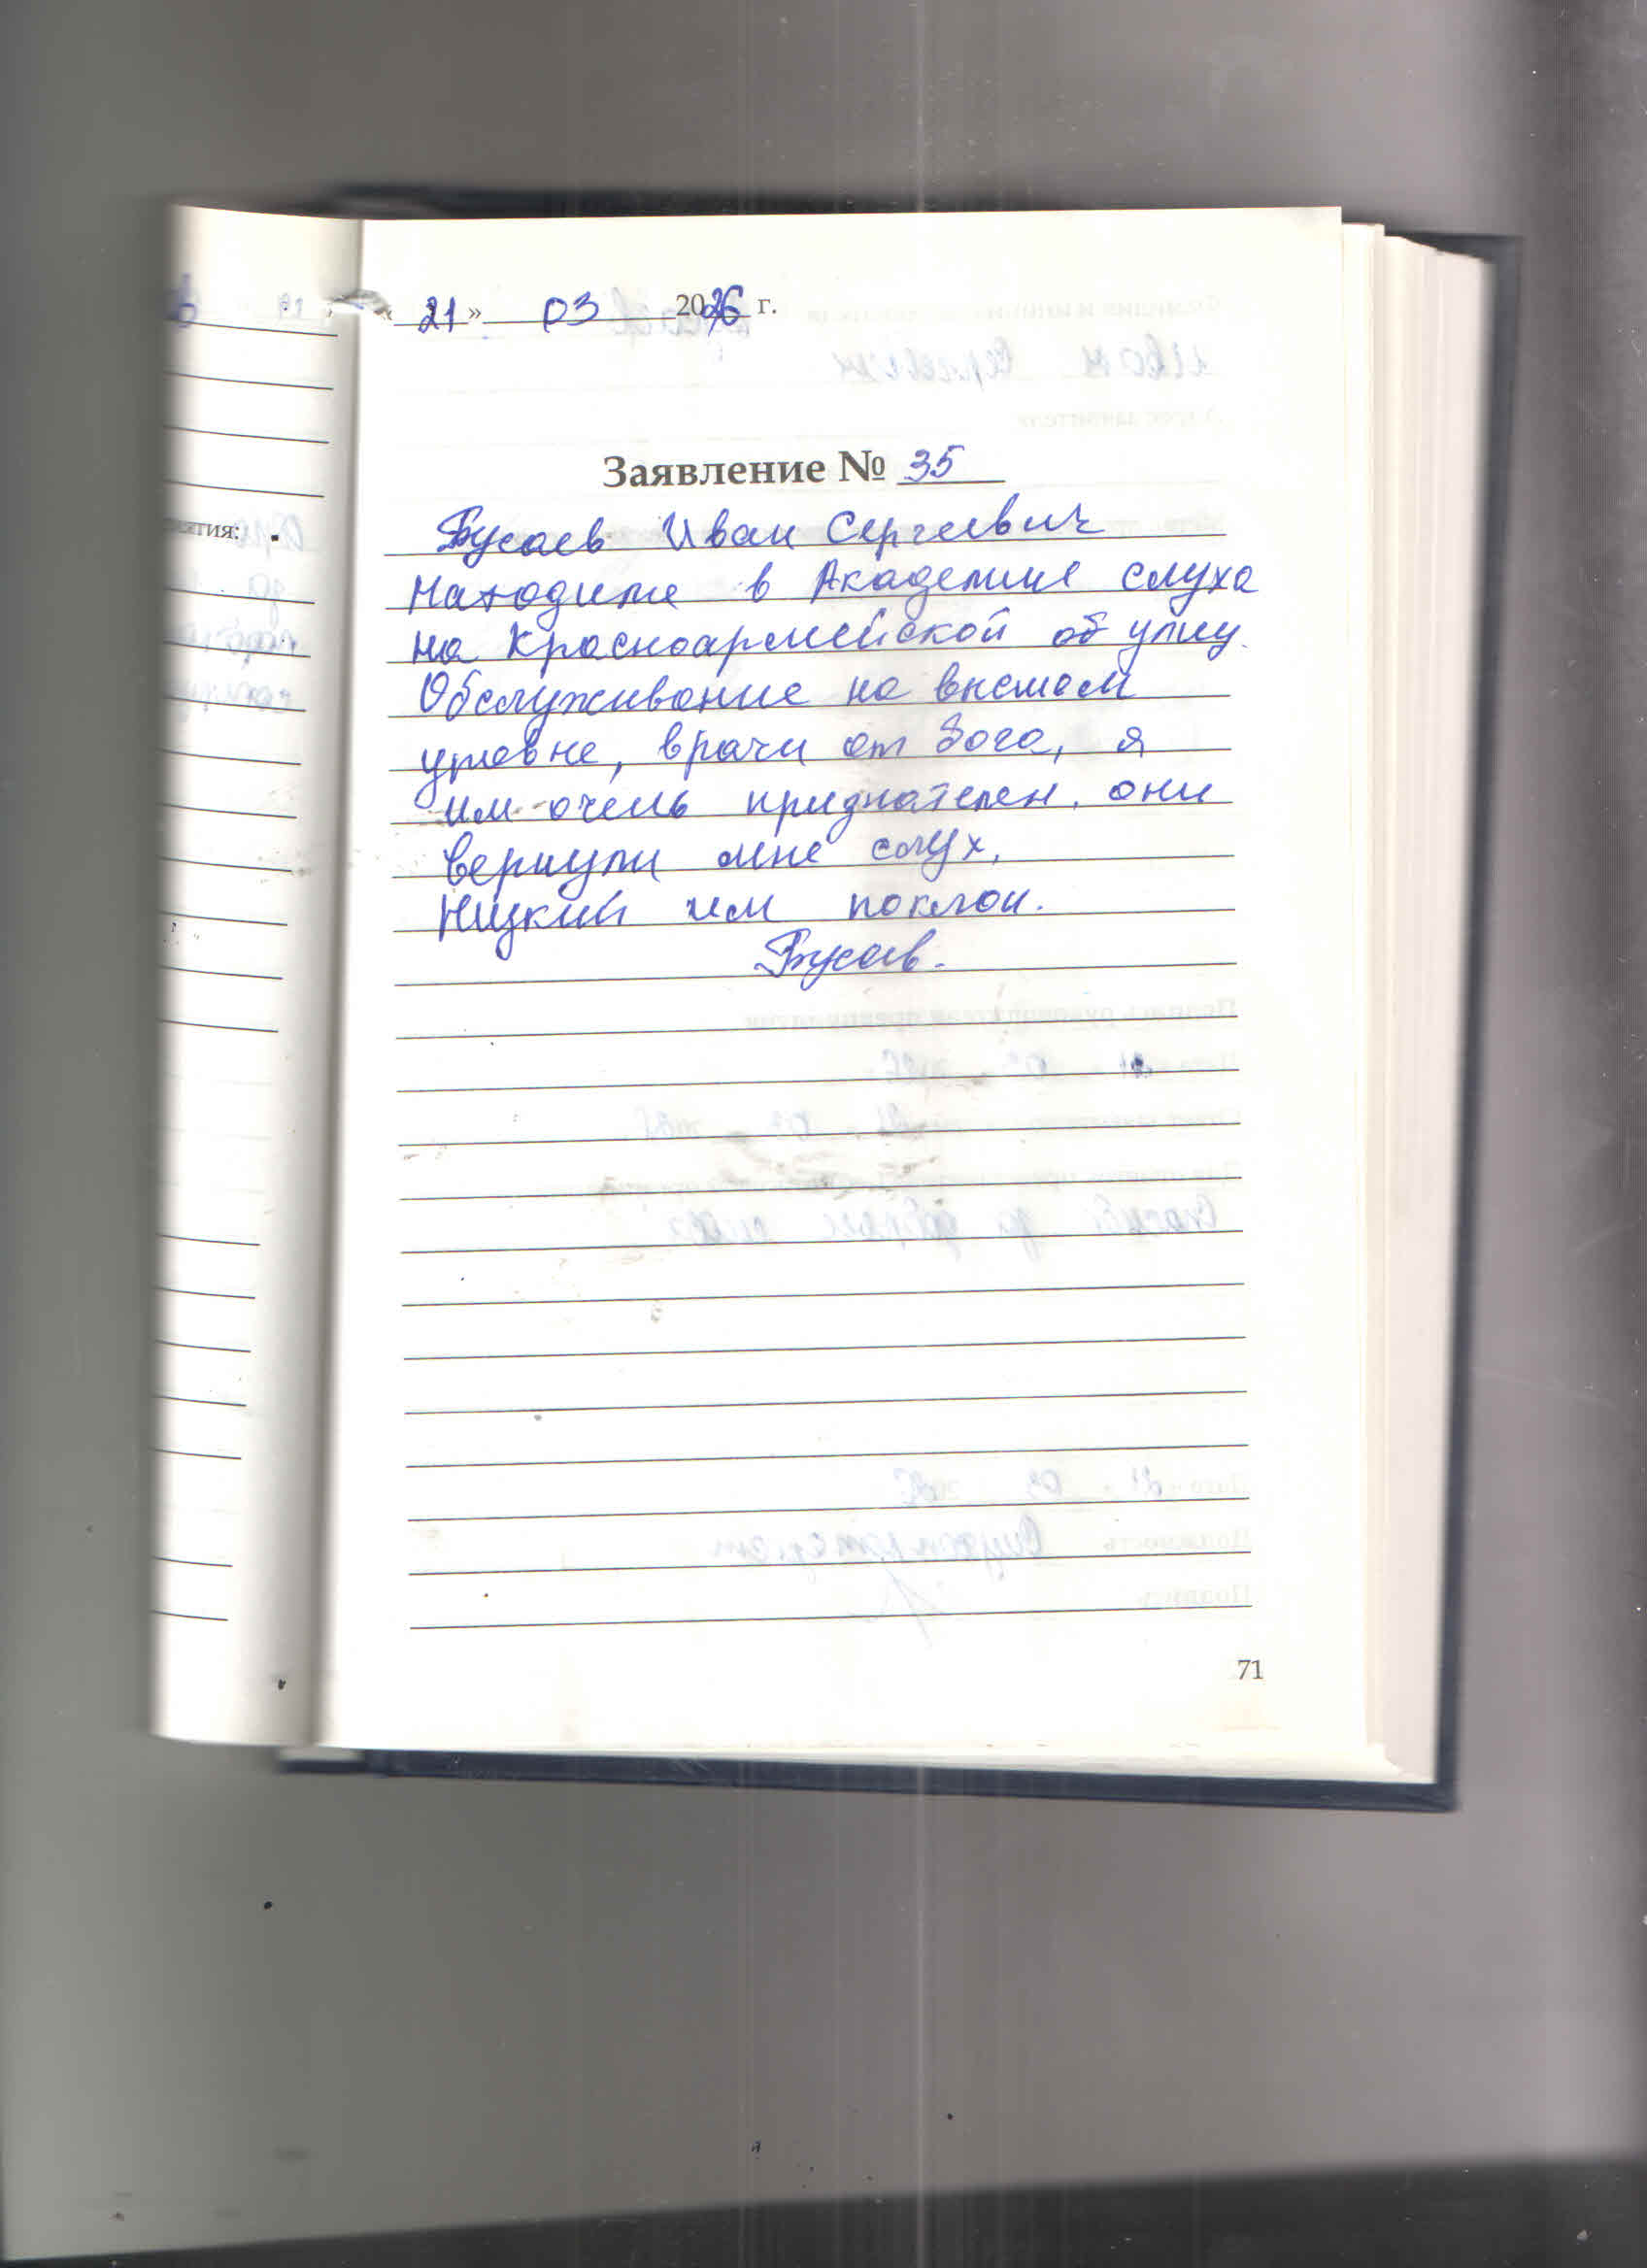 « 21 » 03 2026 г.
Заявление № 35
Бусаев Иван Сергеевич
Находится в Академие слуха
на Красноармейской
Обслуживание на высшем
уровне, врачи от бога, я
им очень признателен, они
вернули мне слух,
Низкий им поклон.
Бусаев.
71